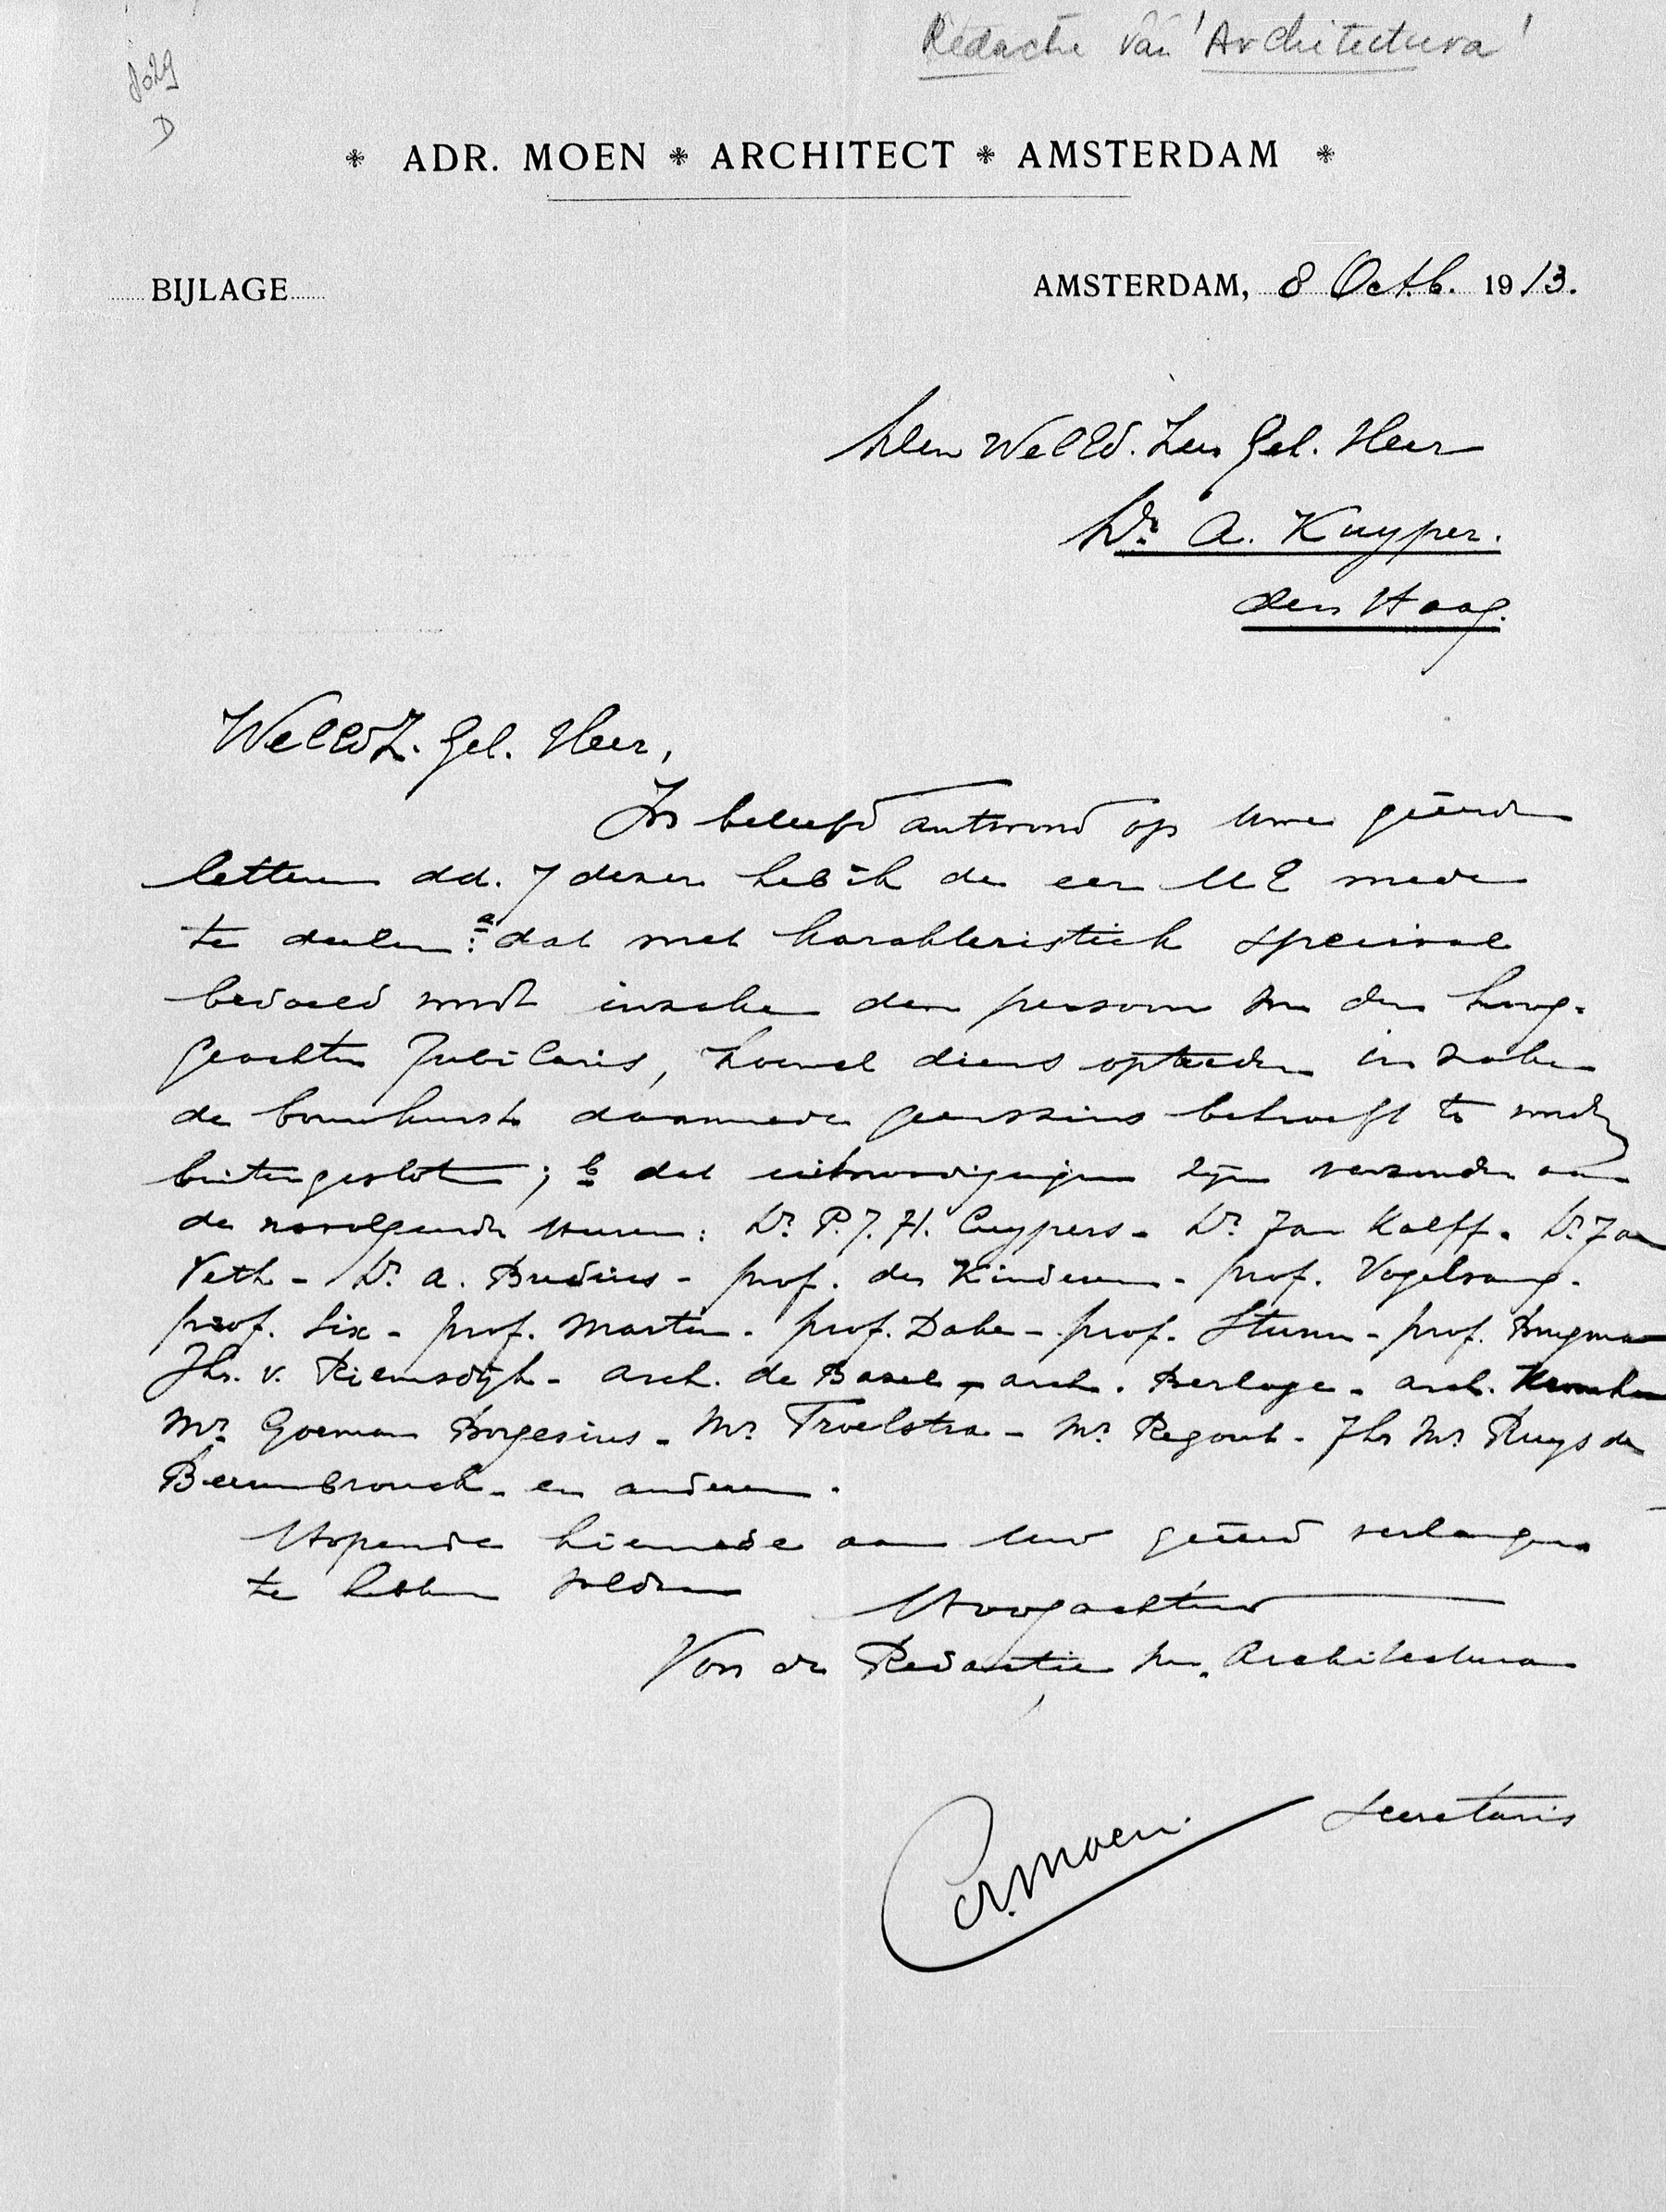 Redactie van 'Architectura'
8029
D
* ADR. MOEN * ARCHITECT * AMSTERDAM *
BIJLAGE
AMSTERDAM, 8 Octb. 1913.
Den WelEd. Zeer Gel. Heer
Dr. A. Kuyper.
den Haag.
WelEdZ. Gel. Heer,
In beleefd antwoord op Uwe geëerde
letteren dd. 7 dezer heb ik de eer UE mede
te deelen: a dat met karakteristiek speciaal
bedoeld wordt inzake den persoon van den hoog-
geachten Jubilaris, hoewel diens optreden in zake
de bouwkunst daarmede geenszins behoeft te worden
buitengesloten; b dat uitnoodigingen zijn verzonden aan
de navolgende Heeren: Dr. P.J.H. Cuypers - Dr. Jan Kalff. Dr. Jan
Veth - Dr. A. Bredius - prof. der Kinderen - prof. Vogelsang -
prof. Six - prof. Martin - prof. Dake - prof. Sturm - prof. Brugmans
Jhr. v. Riemsdijk - arch. de Bazel - arch. Berlage - arch. Kromhout
Mr. Goeman Borgesius - Mr. Troelstra - Mr. Regout - Jhr Mr. Ruys de
Beerenbrouck - en anderen.
Hopende hiermede aan Uw geëerd verlangen
te hebben voldaan
Hoogachtend
Voor de Redactie v. Architectura
A. Moen. Secretaris